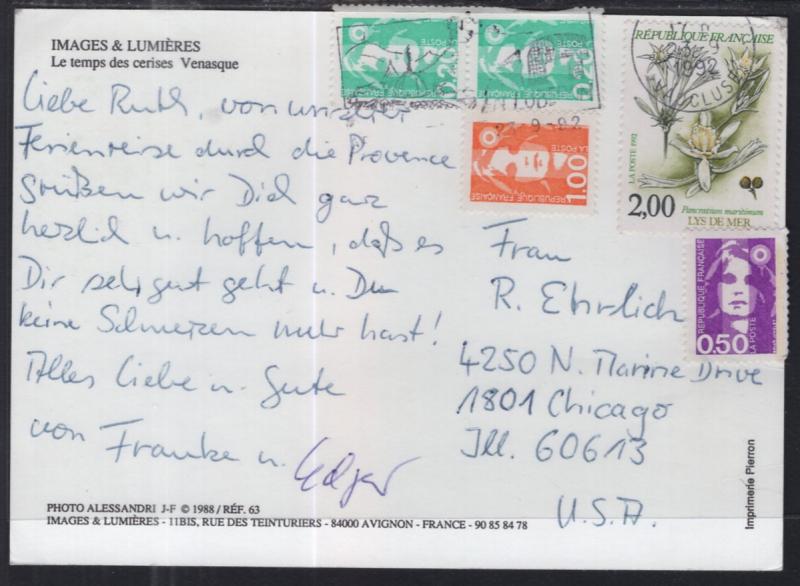 IMAGES & LUMIÈRES
Le temps des cerises Venasque
Liebe Ruth, von unserer
Ferienreise durch die Provence
grüßen wir Dich ganz
herzlich u. hoffen, daß es
Dir sehr gut geht u. Du
keine Schmerzen mehr hast!
Alles Liebe u. Gute
von Frauke u. Edgar
PHOTO ALESSANDRI J-F © 1988 / RÉF. 63
IMAGES & LUMIÈRES - 11BIS, RUE DES TEINTURIERS - 84000 AVIGNON - FRANCE - 90 85 84 78
LA POSTE 0,20
LA POSTE 0,20
LA POSTE 1,00
RÉPUBLIQUE FRANÇAISE
RÉPUBLIQUE FRANÇAISE
LA POSTE 1992
2,00
Pancratium maritimum
LYS DE MER
1992
VAUCLUSE
RÉPUBLIQUE FRANÇAISE
LA POSTE
0,50
Frau
R. Ehrlich
4250 N. Marine Drive
1801 Chicago
Ill. 60613
U.S.A.
Imprimerie Pierron